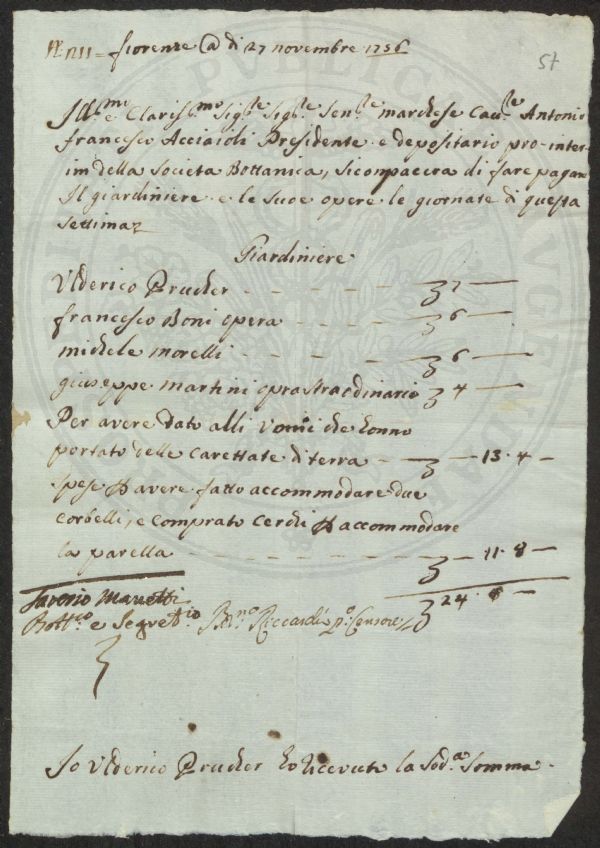 57
fiorenze @ di 27 novembre 1756
Ill.mo e Claris.mo Sig.re Sig.re Sen.re marchese Cau.re Antonio
francesco Acciaioli Presidente e depositario pro-inter-
im della Societa Bottanica, si compiacera di fare pagare
Il giardiniere e le suoe opere le giornate di questa
settima
Giardiniere
Ulderico Prucher - - - - 7 -
francesco Boni opera - - - - 6 -
michele morelli - - - - 6 -
giuseppe martini opra straordinario 4 -
Per avere dato alli vomi che honno
portato delle carettate di terra - - 13.4 -
spese P avere fatto accommodare due
corbelli, e comprato cerchi P accommodare
la parella - - - - - 11.8 -
24.
Saverio Manetti
Bott.co e Segret.rio Riccardi p.o Censore
Io Ulderico Prucher ho ricevuto la Sod.a Somma